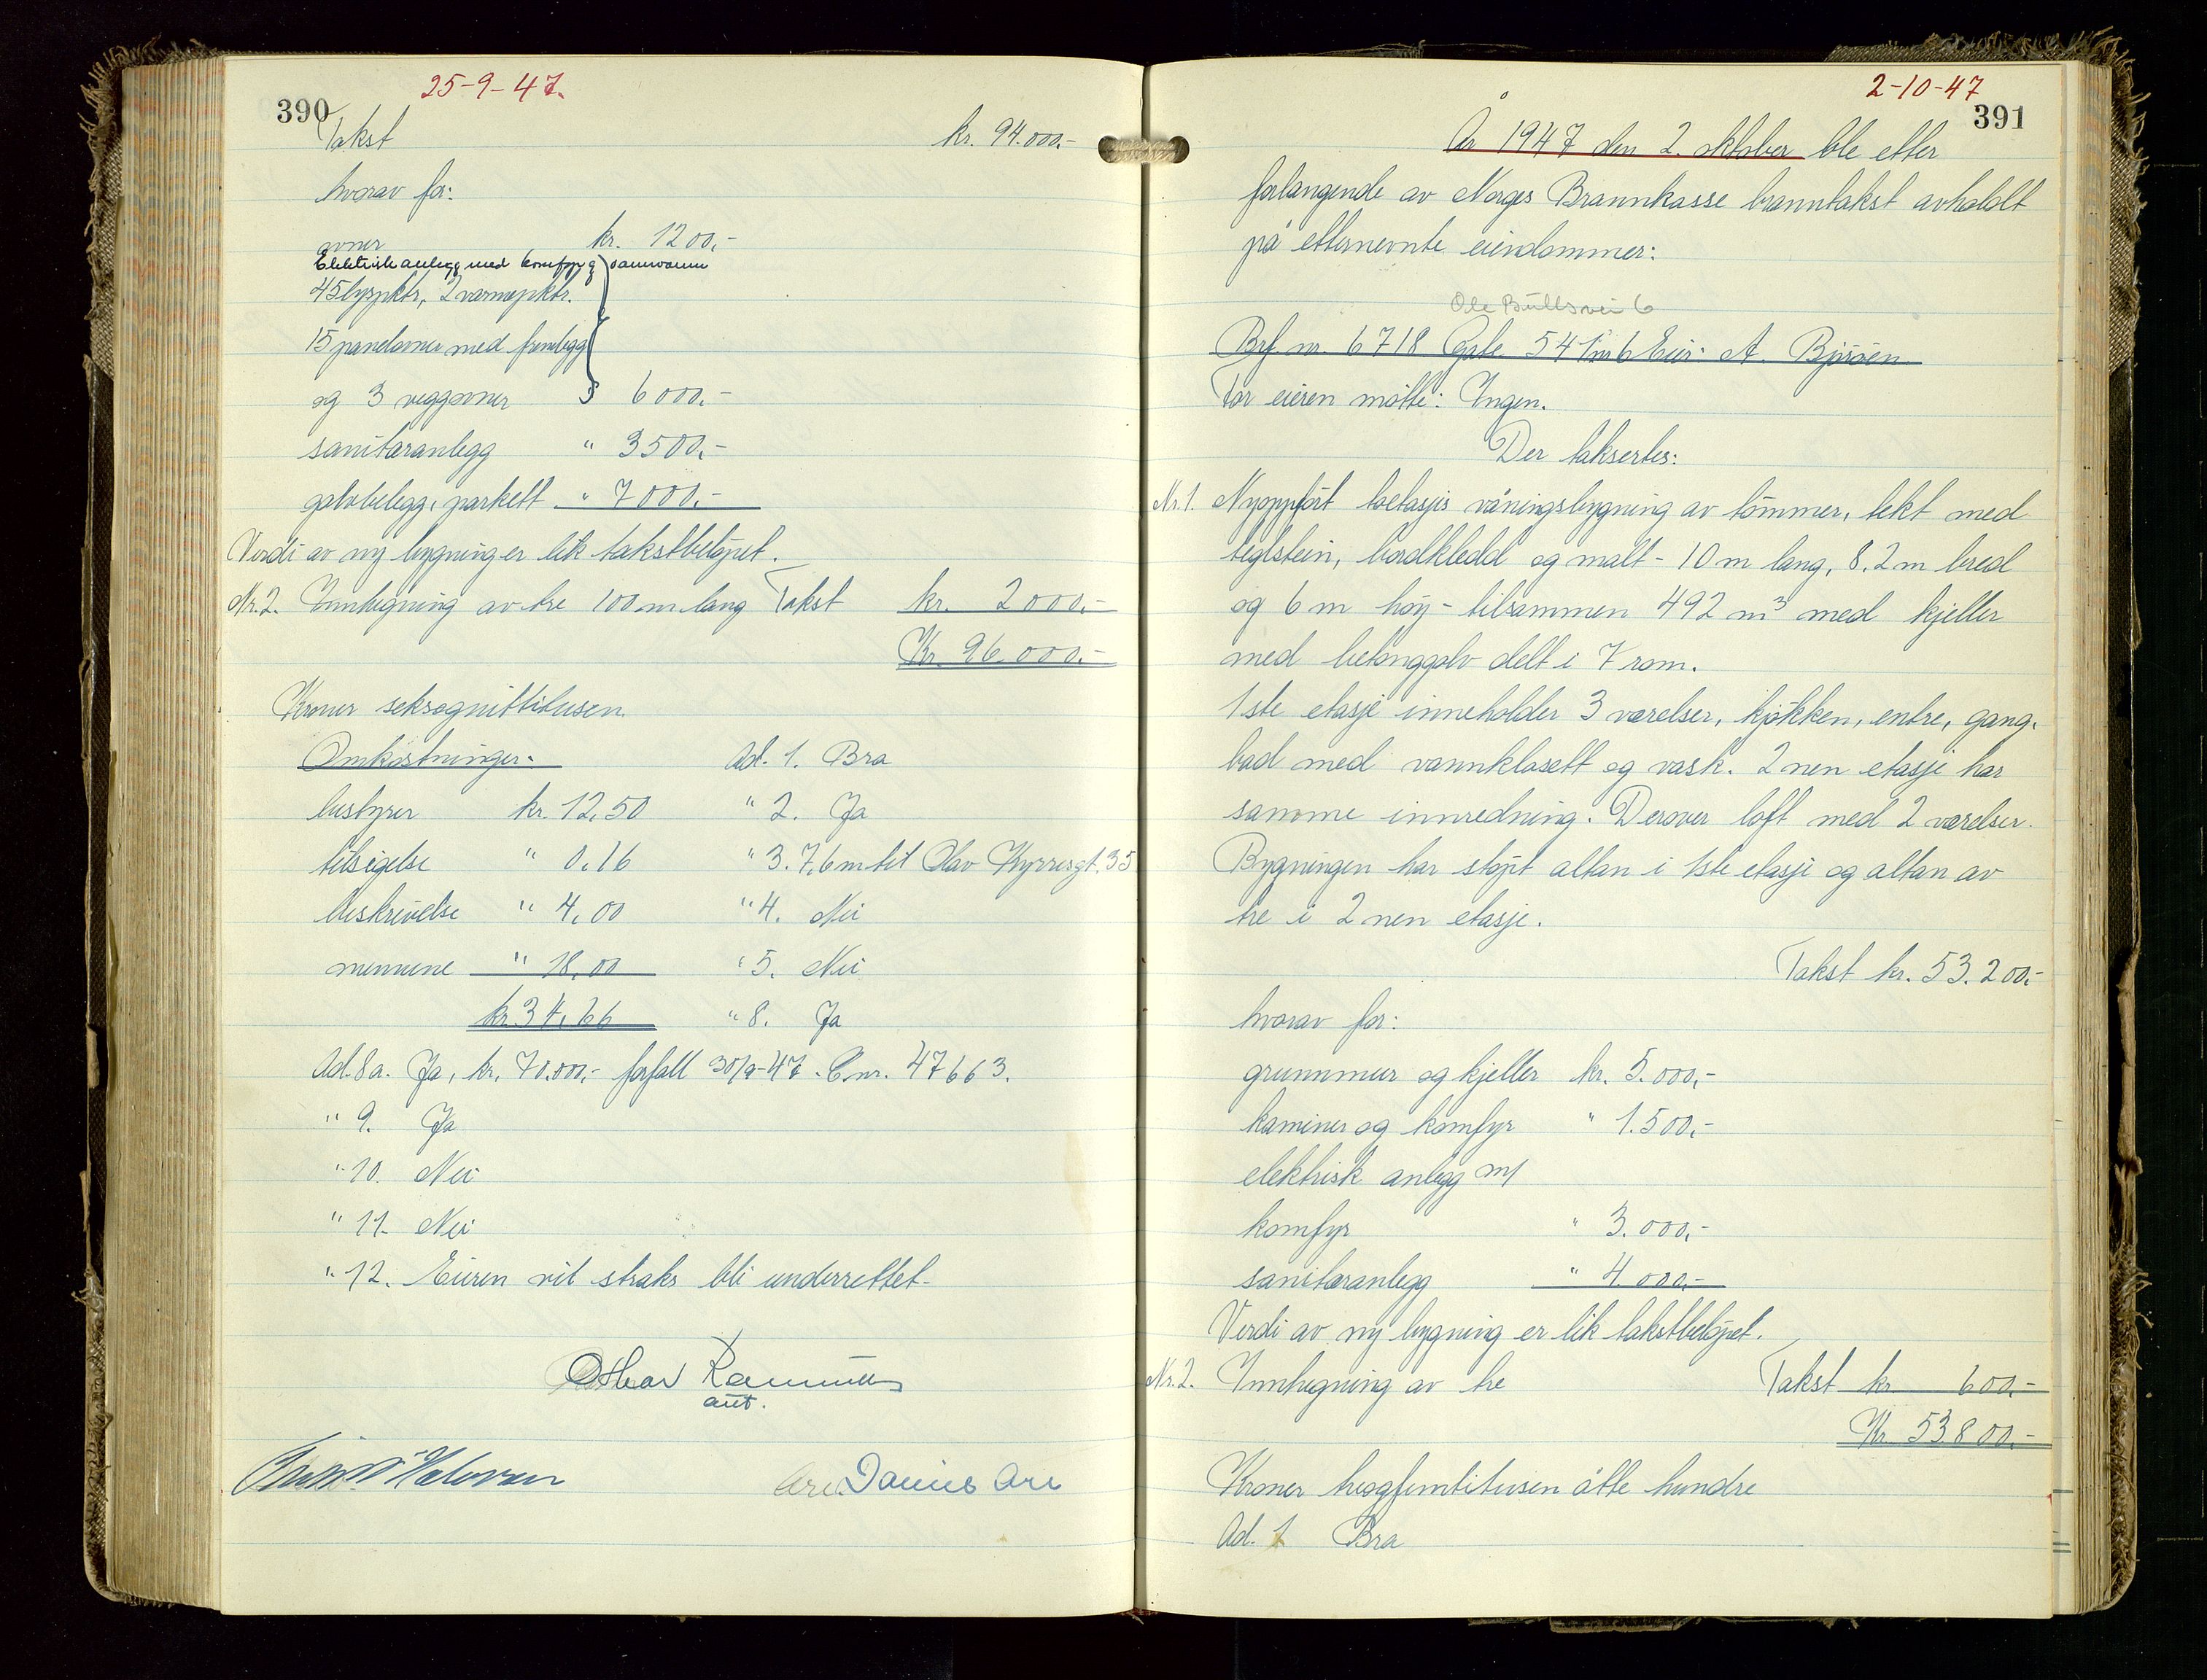 25-9-47.
390
Takst kr. 94.000.-
hvorav for:
ovner kr. 1200,-
Elektrisk anlegg med komfyr og
45 lyspktr, 2 varmepktr.
15 panelovner med fremlegg
og 3 veggovner " 6000.-
sanitæranlegg " 3500,-
golvbelegg, parkett " 7000.-
Verdi av ny bygning er lik takstbeløpet.
Nr. 2. Innhegning av tre 100 m lang Takst kr. 2000.-
Kr. 96.000.-
Kroner seksognittitusen
Omkostninger:
Ad. 1. Bra
bestyrer kr. 12,50 " 2. Ja
tilsigelse " 0,16 " 3. 7,6 m til Olav Kyrresgt. 35
beskrivelse " 4,00 " 4. Nei
mennene " 18,00 " 5. Nei
kr. 34,66 " 8. Ja
Ad. 8a. Ja, kr. 70.000,- forfall 30/9-47. C nr. 47663.
" 9. Ja
" 10. Nei
" 11. Nei
" 12. Eieren vil straks bli underrettet.
Othar
aut.
Are Daniel Are
2-10-47
391
År 1947 den 2. oktober ble etter
forlangende av Norges Brannkasse branntakst avholdt
på etternevnte eiendommer:
Ole Bullsvei 6
Brf. nr. 6718 Gate 541 nr 6 Eier: A. Bjøråen
For eieren møtte: Ingen.
Der taksertes:
Nr. 1. Nyoppført toetasjes våningsbygning av tømmer, tekt med
teglstein, bordkledd og malt - 10 m lang, 8.2 m bred
og 6 m høy - tilsammen 492 m³ med kjeller
med betonggolv delt i 7 rom.
1ste etasje inneholder 3 værelser, kjøkken, entre, gang,
bad med vannklosett og vask. 2nen etasje har
samme innredning. Derover loft med 2 værelser.
Bygningen har støpt altan i 1ste etasje og altan av
tre i 2nen etasje.
Takst kr. 53.200.-
hvorav for:
grunnmur og kjeller kr. 5.000,-
kaminer og komfyr " 1.500,-
elektrisk anlegg m/
komfyr " 3.000,-
sanitæranlegg " 4.000,-
Verdi av ny bygning er lik takstbeløpet.
Nr. 2. Innhegning av tre Takst kr. 600,-
Kr. 53800,-
Kroner treogfemtitusen åtte hundre
Ad. 1 Bra